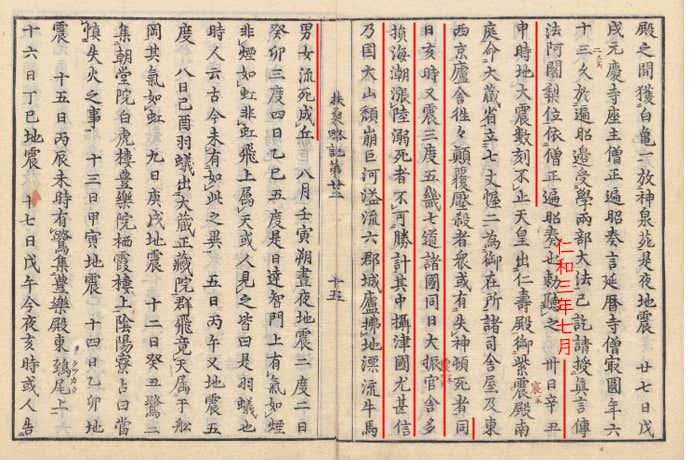 殿之間獲白龜一放神泉苑是夜地震　廿七日戊
戌元慶寺座主僧正遍昭奏言延暦寺僧寂圓年六
十三久於遍昭邊受學兩部大法已訖諸授真言傳
法阿闍梨位依僧正遍昭奏也勅聽之　卅日辛丑
仁和三年七月
申時地大震數刻不止天皇出仁壽殿御紫震殿南
庭命大藏省立七丈幄二為御在所諸司舎屋及東
西京廬舎往々顛覆壓殺者衆或有失神頓死者同
日亥時又震三度五畿七道諸國同日大振官舎多
損海潮漲陸溺死者不可勝計其中攝津國尤甚信
乃国大山頽崩巨河溢流六郡城廬拂地漂流牛馬
扶桒略記第廿二　十五
男女流死成丘　八月壬寅朔晝夜地震二度二日
癸卯三度四日乙巳五度是日達智門上有氣如煙
非煙如虹非虹飛上属天或人見之皆曰是羽蟻也
時人云古今未有如此之異　五日丙午又地震五
度　八日己酉羽蟻出大蔵正蔵院群飛竟天属于船
岡其氣如虹　九日庚戌地震　十二日癸丑鷺二
集朝堂院白虎樓豊樂院栖霞樓上陰陽寮占曰當
慎失火之事　十三日甲寅地震　十四日乙卯地
震　十五日丙辰未時有鷺集豊樂殿東鵄尾上
十六日丁巳地震　十七日戊午今夜亥時或人告